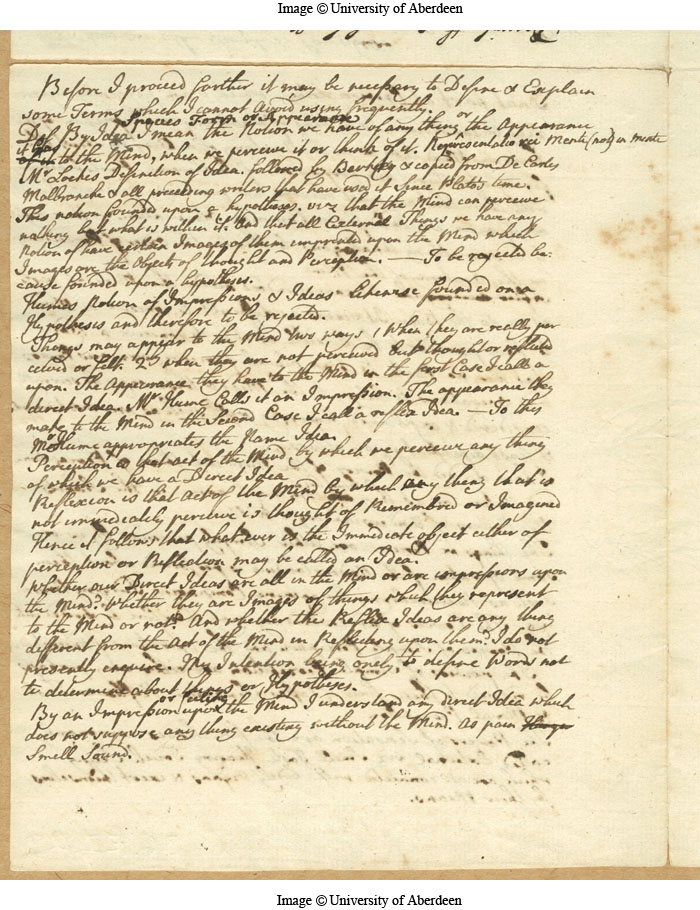 Image © University of Aberdeen
Before I proceed farther it may be necessary to Define & Explain
some Terms which I cannot Avoid using frequently.
Species Form or Appearance
Def. By Idea I mean the Notion we have of any thing or the Appearance
it has to the Mind, when we perceive it or think of it. Representatio rei Menti (not) in mente
Mr Lockes Definition of Idea. followed by Berkley & copied from De Cartes
Malbranche & all preceeding writers that have used it since Plato's time.
This notion founded upon a hypothesis. viz that the Mind can perceive
nothing but what is within it. And that all External Things we have any
Notion of have certain Images of them imprinted upon the Mind which
Images are the Objects of thought and Perception. — To be rejected be-
cause founded upon a hypotheses.
Humes Notion of Impressions & Ideas likewise founded on a
Hypothesis and therefore to be rejected.
Things may appear to the Mind two ways 1 When they are really per
ceived or felt. 2d when they are not perceived but thought or reflected
upon. The Appearance they have to the Mind in the first Case I call a
direct Idea. Mr Hume Calls it an Impression. The appearance they
make to the Mind in the Second Case I call a reflex Idea. — To this
Mr Hume appropriates the Name Idea.
Perception is that act of the Mind by which we perceive any thing
of which we have a Direct Idea
Reflexion is that Act of the Mind by which any thing that is
not immediately perceive is thought of Remembred or Imagined
Hence it follows that what ever is the Immediate object either of
perception or Reflection may be called an Idea.
Whether our Direct Ideas are all in the Mind or are impressions upon
the Mind. Whether they are Images of things which they represent
to the Mind or not? And whether the Reflex Ideas are any thing
different from the Act of the Mind in Reflecting upon them? I do not
presently enquire. My Intention being onely to define Words not
to determine about things or Hypotheses.
or feeling
By an Impression upon the Mind I understand any direct Idea which
does not suppose any thing existing without the Mind. as pain Hunger
Smell Sound.
Image © University of Aberdeen